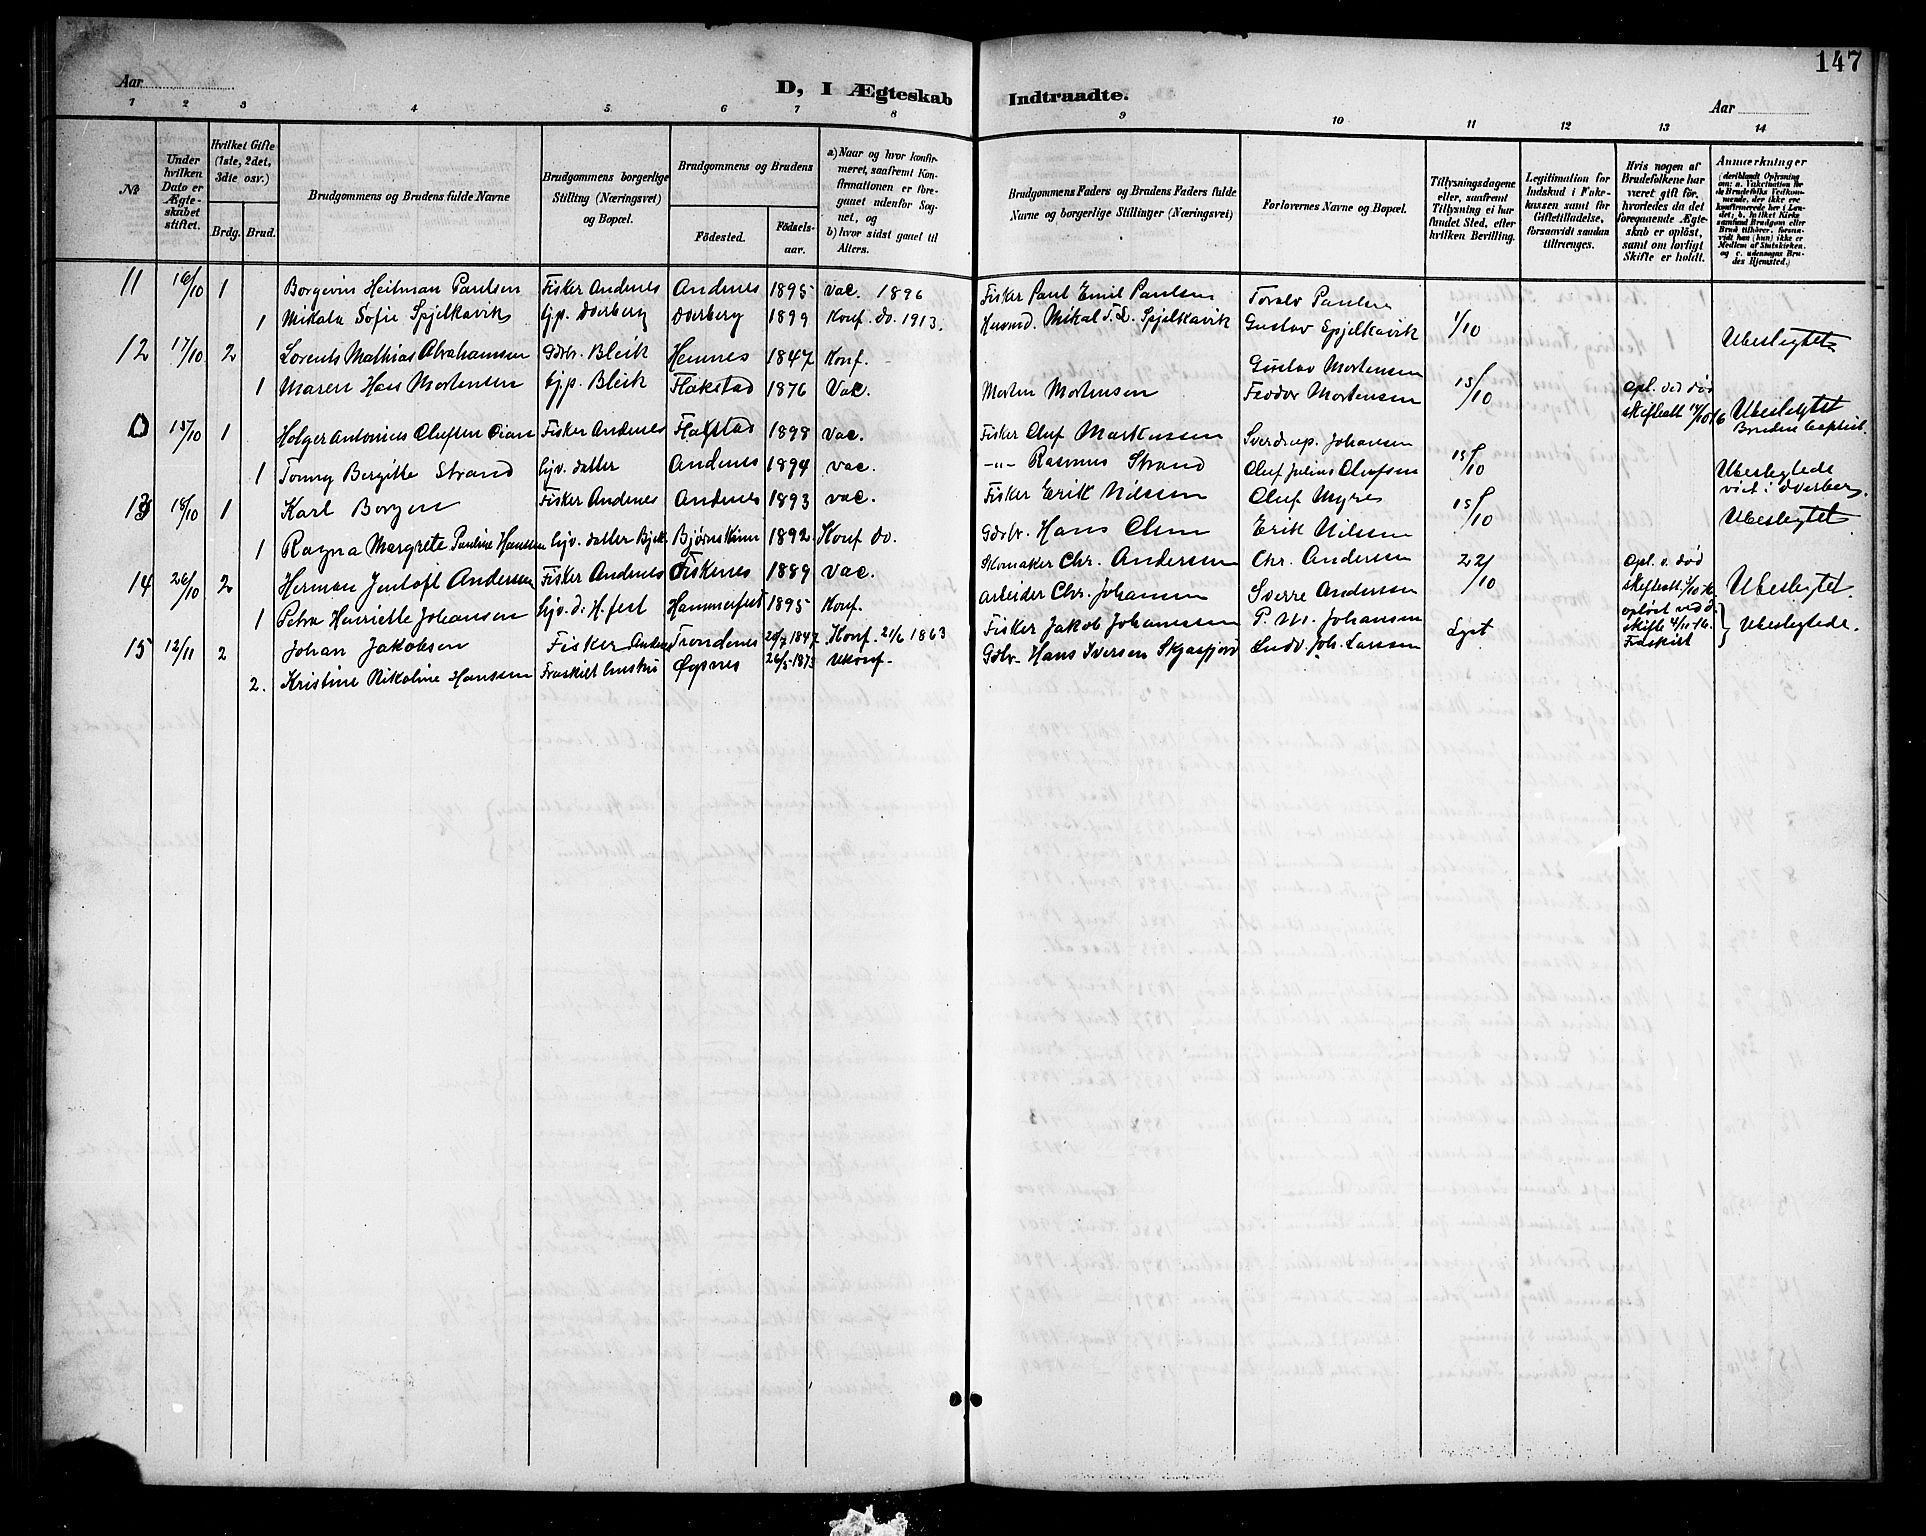 147
Aar
D, I Ægteskab Indtraadte.
Aar
1 2 3 4 5 6 7 8 9 10 11 12 13 14
№
Under hvilken Dato er Ægteskabet stiftet.
Hvilket Gifte (1ste, 2det, 3die osv.)
Brdg. Brud.
Brudgommens og Brudens fulde Navne
Brudgommens borgerlige Stilling (Næringsvei) og Bopæl.
Brudgommens og Brudens
Fødested.
Fødselsaar.
a) Naar og hvor konfirmeret, saafremt Konfirmationen er foregaaet udenfor Sognet, og
b) hvor sidst gaaet til Alters.
Brudgommens Faders og Brudens Faders fulde Navne og borgerlige Stillinger (Næringsvei)
Forlovernes Navne og Bopæl.
Tillysningsdagene eller, saafremt Tillysning ei har fundet Sted, efter hvilken Bevilling.
Legitimation for Indskud i Enkekassen samt for Giftetilladelse, forsaavidt saadan tiltrænges.
Hvis nogen af Brudefolkene har været gift før, hvorledes da det foregaaende Ægteskab er opløst, samt om lovligt Skifte er holdt.
Anmærkninger (deriblandt Oplysning om: a. Vakcination for de Brudefolks Vedkommende, der ikke ere konfirmerede her i Landet; b. hvilket Kirkesamfund Brudgom eller Brud tilhører, forsaavidt han (hun) ikke er Medlem af Statskirken, og c. udensogns Brudes Hjemsted.)
11 16/10 1 Borgevin Heitman Paulsen Fisker Andenes Andenes 1895 Vac. 1896 Fisker Paul Emil Paulsen Torolv Paulsen
1 Mikala Sofie Spjelkavik Gjp. Dverberg Dverberg 1899 Konf. do. 1913. Mikal Spjelkavik Gustav Spjelkavik 1/10 Ubeslegtet
12 17/10 2 Lorents Mathias Abrahamsen Gdbr. Bleik Hemnes 1847 Konf. Gustav Mortensen
1 Maren Has Mortensen Gjp. Bleik Flakstad 1876 Vac. Morten Mortensen Feodor Mortensen 15/10 Opl. ved død Ubeslegtet
O 15/10 1 Holger Antonius Olufsen Fisker Andenes Flakstad 1898 Vac. Fisker Oluf Markussen Sverdrup Johansen Bruden baptist.
1 Tonny Bergitte Strand Gjv. datter Andenes 1894 Vac. -"- Rasmus Strand Oluf Julius Olufsen 15/10 Ubeslegtede
13 18/10 1 Karl Borgen Fisker Andenes Andenes 1893 Vac. Fisker Erik Nilssen Oluf Myre 15/10 viet i Dverberg.
1 Ragna Margrete Pauline Hansen Gjv. datter Bjørnskinn 1892 Konf do. Gdbr. Hans Olsen Erik Nilssen Ubeslegtet
14 26/10 2 Herman Jentoft Andersen Fisker Andenes Fiskenes 1889 Vac. Skomaker Chr. Andersen Chr. Andersen 22/10 opl. v. død
1 Petra Henriette Johansen Gjv. d. H.fest Hammerfest 1895 Konf. arbeider Chr. Johansen Sverre Andersen Ubeslegtet.
15 12/11 2 Johan Jakobsen Fisker Andenes Trondenes 1847 Konf. 21/6 1863 Fisker Jakob Johannessen P. M. Johansen Lyst opløst ved d. skifte 4/11-16. Ubeslegtede.
2. Kristine Nikoline Hanssen Fraskilt hustru Øksnes 26/5-1873 Ukonf. Gdbr. Hans Iversen Skjaafjord Ludv. Joh. Larssen Fraskilt